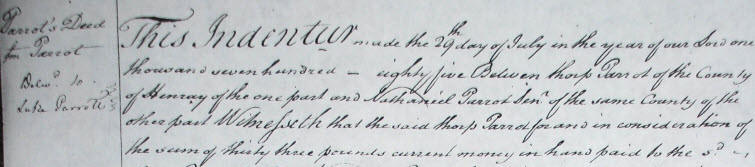 Parrot's Deed
from Parrot
Delvd. to
Parrott
This Indentur made the 29th day of July in the year of our Lord one
thousand seven hundred - eighty five Betwen thorp Parrot of the County
of Henray of the one part and Nathaniel Parrot Senr. of the same County of the
other part Witnesseth that the said thorp Parrot for and in consideration of
the sum of thirty three pounds current money in hand paid to the sd. -